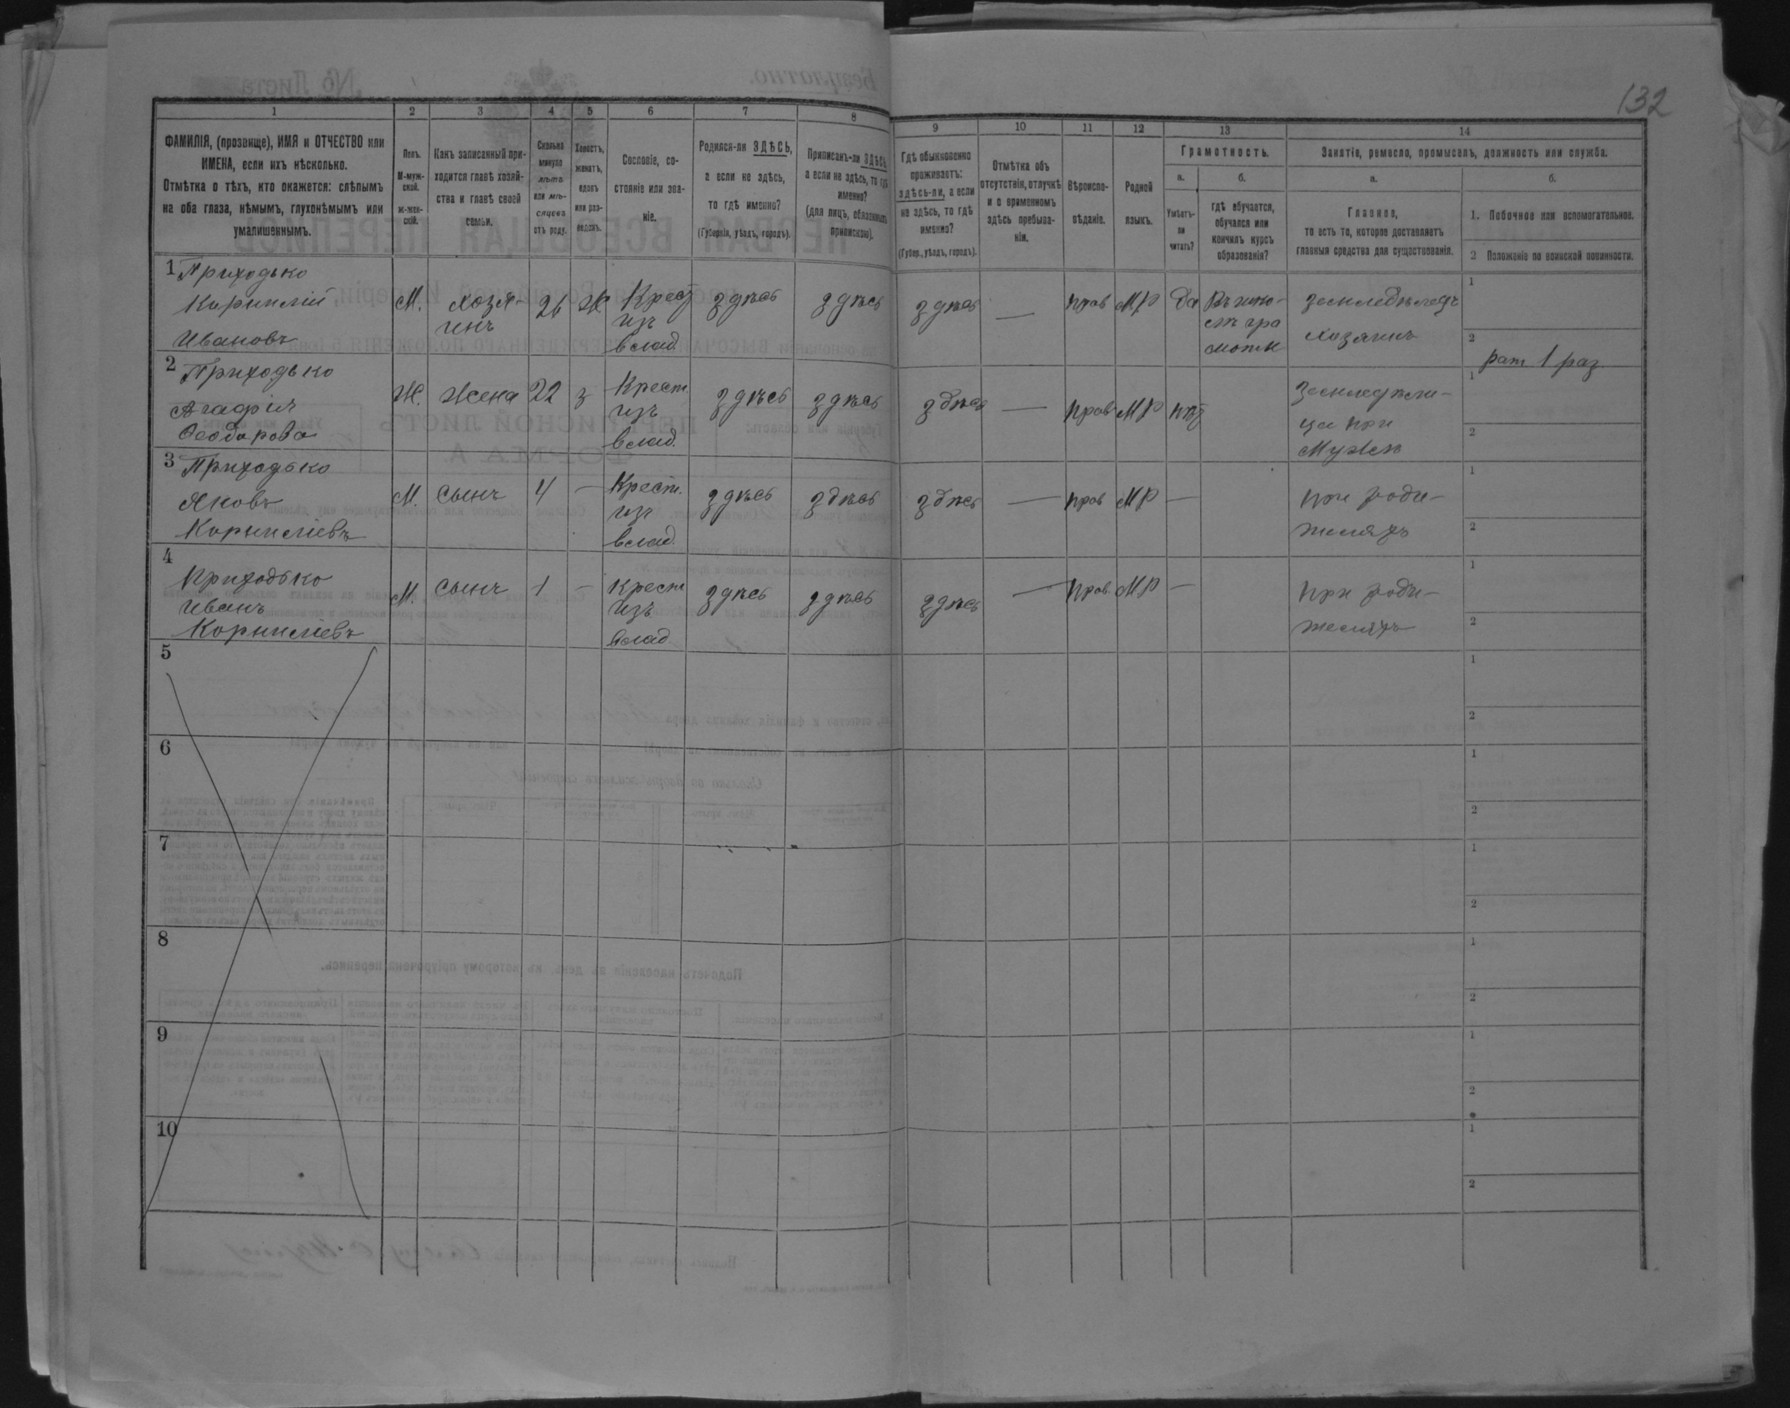 132
1 2 3 4 5 6 7 8 9 10 11 12 13 14
ФАМИЛІЯ, (прозвище), ИМЯ и ОТЧЕСТВО или
ИМЕНА, если ихъ нѣсколько.
Отмѣтка о тѣхъ, кто окажется: слѣпымъ
на оба глаза, нѣмымъ, глухонѣмымъ или
умалишеннымъ.
Полъ.
М-муж-
ской.
ж-жен-
скій.
Какъ записанный при-
ходится главѣ хозяй-
ства и главѣ своей
семьи.
Сколько
минуло
лѣтъ
или мѣ-
сяцевъ
отъ роду.
Холостъ,
женатъ,
вдовъ
или раз-
веденъ.
Сословіе, со-
стояніе или зва-
ніе.
Родился-ли ЗДѢСЬ,
а если не здѣсь,
то гдѣ именно?
(Губернія, уѣздъ, городъ).
Приписанъ-ли ЗДѢСЬ,
а если не здѣсь, то гдѣ
именно?
(для лицъ, обязанныхъ
припискою).
Гдѣ обыкновенно
проживаетъ:
здѣсь-ли, а если
не здѣсь, то гдѣ
именно?
(Губер., уѣздъ, городъ).
Отмѣтка объ
отсутствіи, отлучкѣ
и о временномъ
здѣсь пребыва-
ніи.
Вѣроиспо-
вѣданіе.
Родной
языкъ.
Грамотность.
а.
Умѣетъ-
ли
читать?
б.
гдѣ обучается,
обучался или
кончилъ курсъ
образованія?
Занятіе, ремесло, промыселъ, должность или служба.
а.
Главное,
то есть то, которое доставляетъ
главныя средства для существованія.
б.
1. Побочное или вспомогательное.
2 Положеніе по воинской повинности.
1 Приходько
Корнилій
Ивановъ
М.
хозя-
инъ
26
Ж
Крест
изъ
влад.
здѣсь
здѣсь
здѣсь
—
прав
МР
да
земледѣлецъ
хозяинъ
1
2
рат 1 раз
2 Приходько
Агафія
Феодорова
Ж.
жена
22
з
Крест.
изъ
влад.
здѣсь
здѣсь
здѣсь
—
прав
МР
нѣт
при
мужѣ
1
2
3 Приходько
Яковъ
Корниліевъ
М.
сынъ
4
—
Крест.
изъ
влад.
здѣсь
здѣсь
здѣсь
—
прав
МР
—
при роди-
теляхъ
1
2
4
Приходько
Иванъ
Корниліевъ
М.
сынъ
1
—
Крест
изъ
влад
здѣсь
здѣсь
здѣсь
—
прав
МР
—
при роди-
теляхъ
1
2
5
1
2
6
1
2
7
1
2
8
1
2
9
1
2
10
1
2